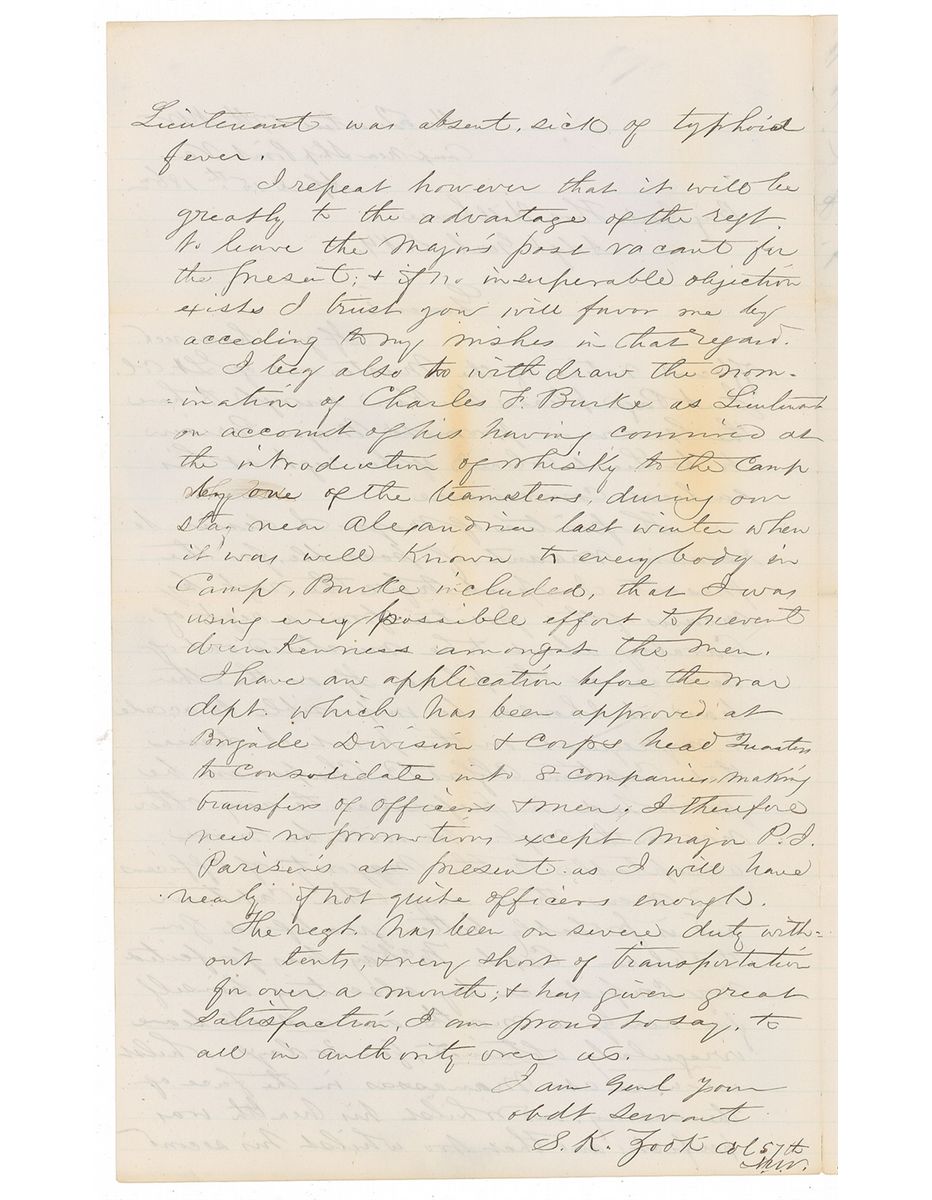 Lieutenant was absent, sick of typhoid
fever.
I repeat however that it will be
greatly to the advantage of the regt.
to leave the Major's post vacant for
the present; & if no insuperable objection
exists I trust you will favor me by
acceding to my wishes in that regard.
I beg also to withdraw the nom-
-ination of Charles F. Burke as Lieutenant
on account of his having connived at
the introduction of whisky to the Camp
by one of the teamsters, during our
stay near Alexandria last winter when
it was well Known to every body in
Camp, Burke included, that I was
using every possible effort to prevent
drunkenness amongst the men.
I have an application before the war
dept. which has been approved at
Brigade Division & Corps head Quarters
to consolidate into 8 companies, making
transfers of officers & men. I therefore
need no promotions except Major P. J.
Parisen's at present as I will have
nearly if not quite officers enough.
The regt. has been on severe duty with=
out tents, & very short of transportation
for over a month; & has given great
satisfaction, I am proud to say, to
all in authority over us.
I am Genl your
obdt servant
S. K. Zook Col 57th
N.Y.V.